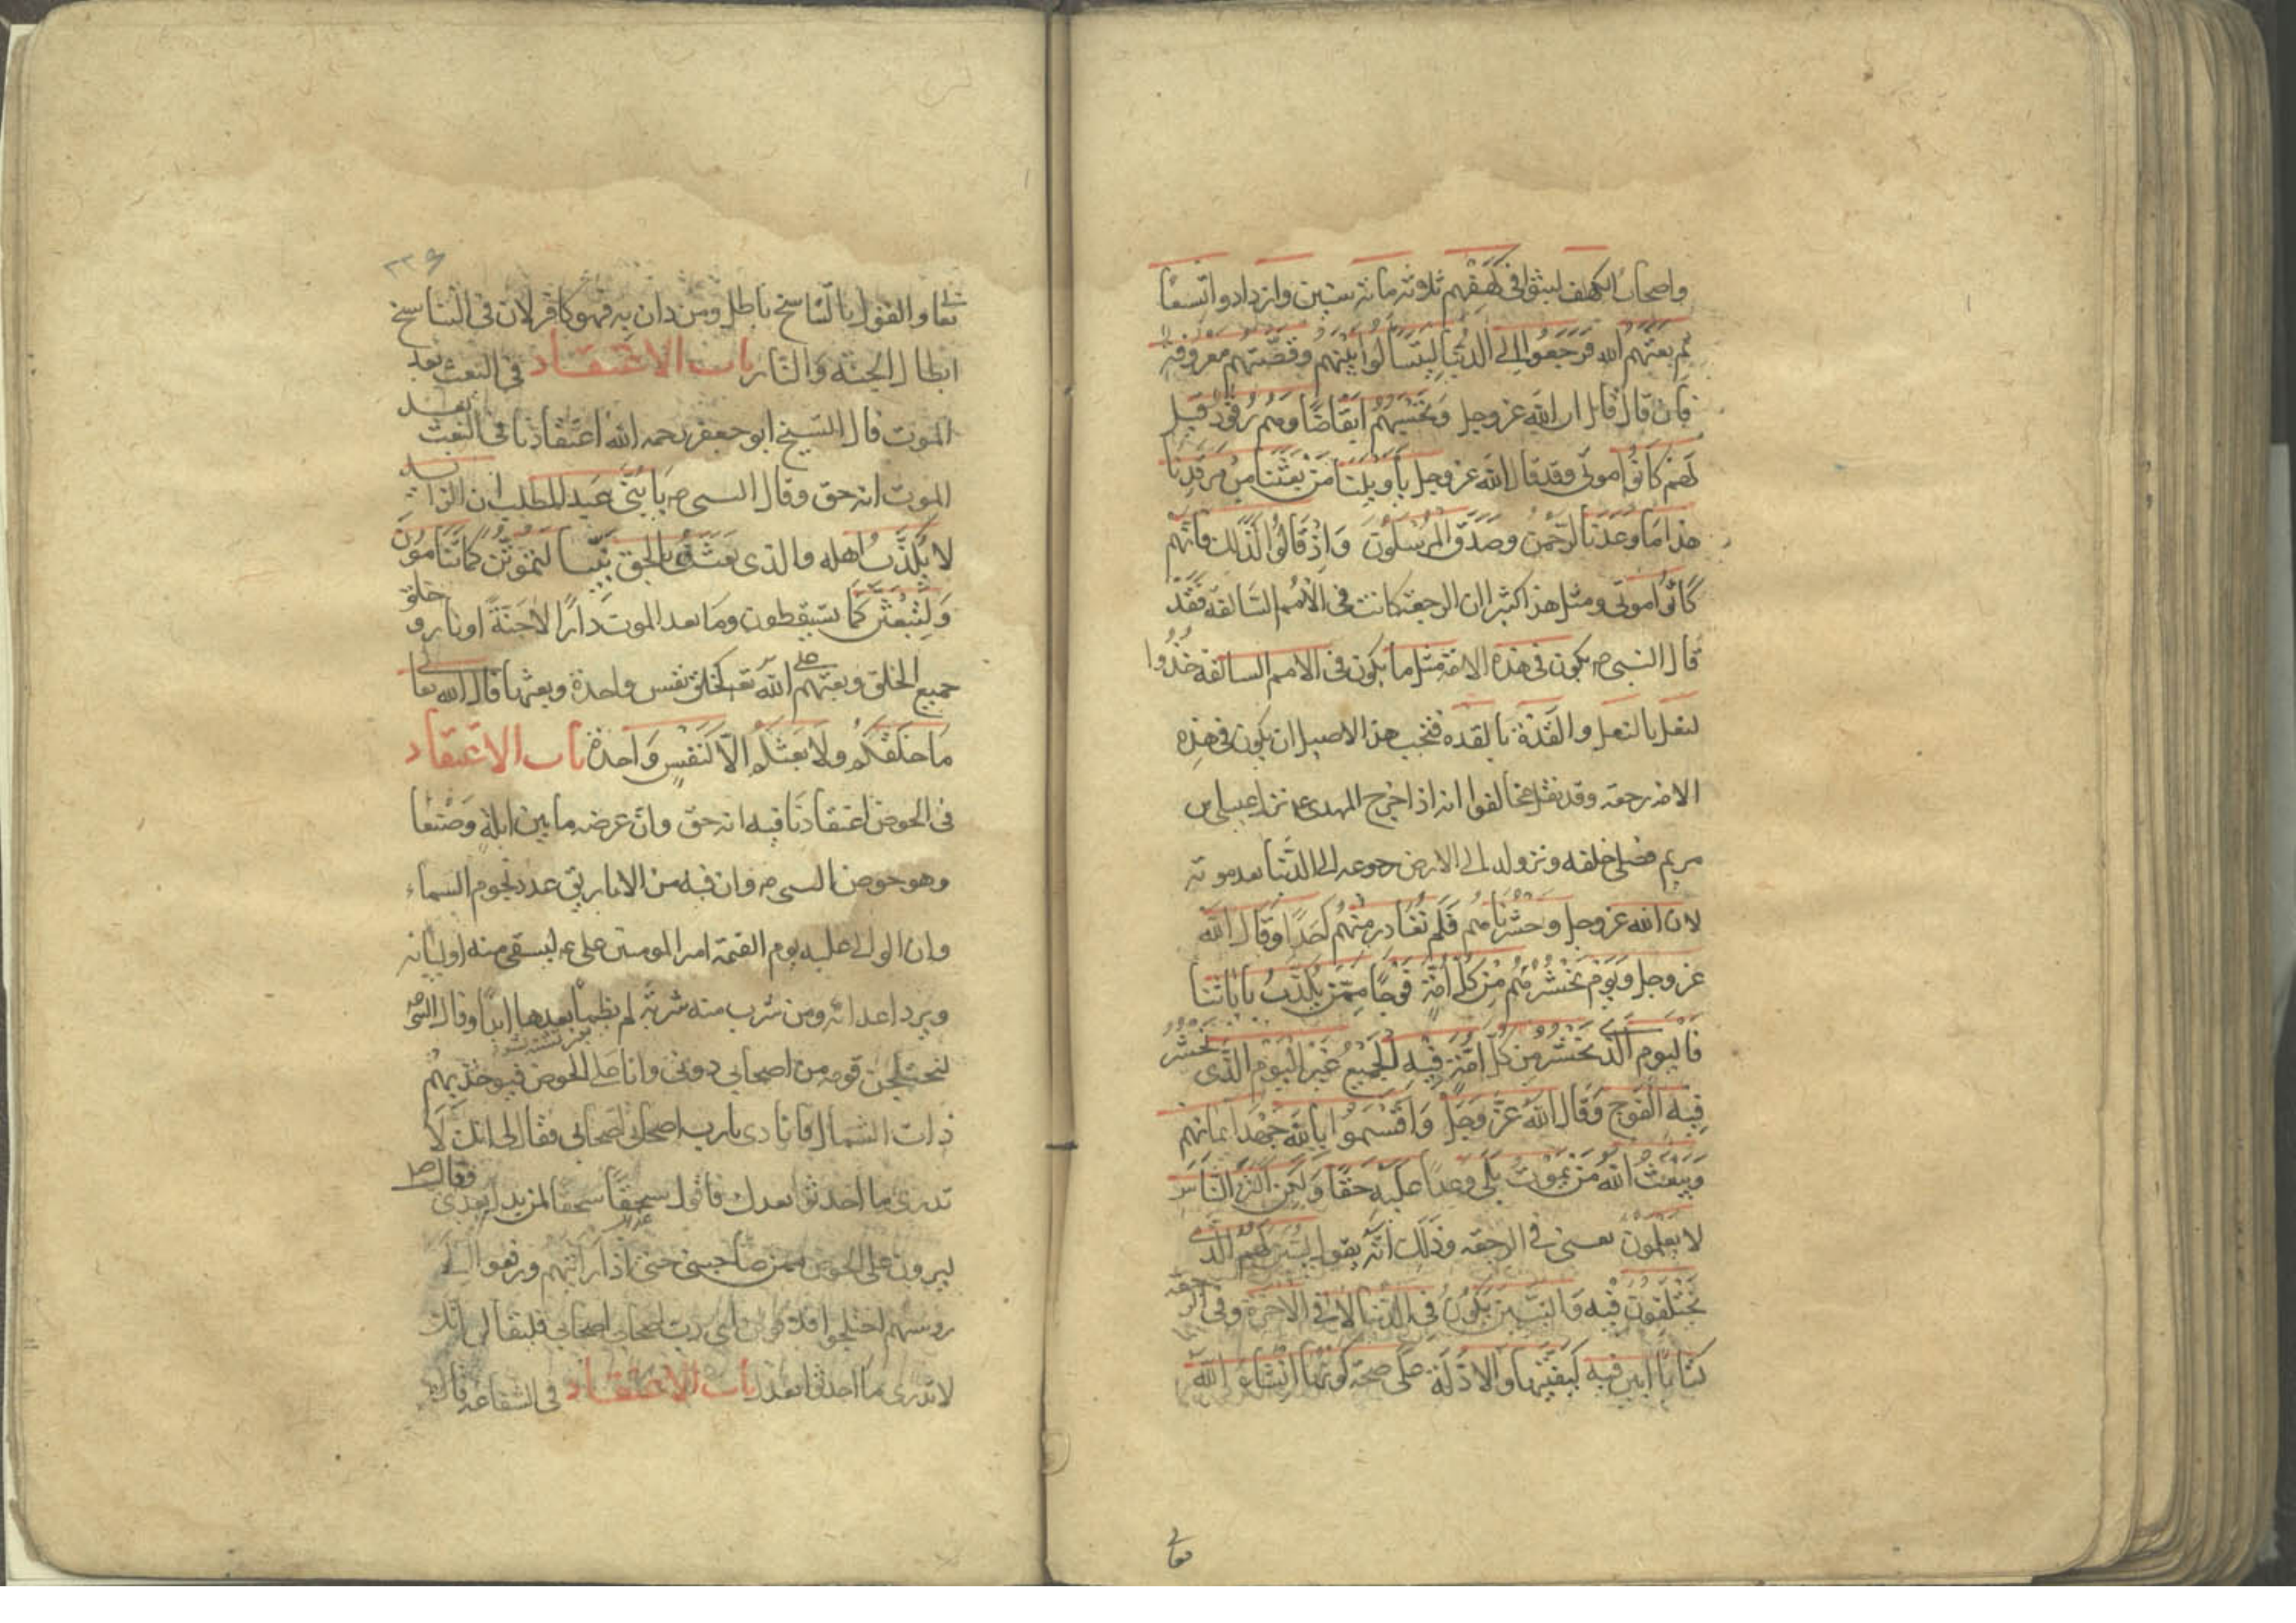 واصحاب الكهف لبثوا في كهفهم ثلاثة مائة سنين وازدادوا تسعا
ثم بعثهم الله فرجعوا الى الدنيا ليتسائلوا بينهم وقصتهم معروفة
فان قال قائل ان الله عز وجل وتحسبهم ايقاضا وهم رقود قيل
لهم كانوا موتى وقد قال الله عز وجل يا ويلنا من بعثنا من مرقدنا
هذا ما وعدنا الرحمن وصدق المرسلون واذ قالوا لذلك فانهم
كانوا موتى ومثل هذا كثير ان الرجعة كانت في الامم السالفة فقد
قال النبي ص يكون في هذه الامة مثل ما يكون في الامم السالفة حذوا
لنعل بالنعل والقذة بالقذه فتجب هذا الاصيل ان يكون في هذه
الامة رجعة وقد نقل مخالفوا انه اذا خرج المهدي ع نزل عيسى بن
مريم فصلى خلفه ونزوله الى الارض رجوعه الى الدنيا بعد موته
لان الله عز وجل وحشرناهم فلم نغادر منهم احدا وقال الله
عز وجل ويوم نحشرهم من كل امة فوجا ممن يكذب باياتنا
فاليوم الذي نحشر من كل امة فيه الجميع غير اليوم الذي نحشر
فيه الفوج وقال الله عز وجل واقسموا بالله جهد ايمانهم
ويبعث الله من يموت بلى وعدا عليه حقا ولكن اكثر الناس
لا يعلمون يعنى في الرجعة وذلك انه يقول ليبين لهم الذي
يختلفون فيه والتبيين يكون في الدنيا لا في الاخرة وفي الرجعة
كتابا ابين فيه كيفيتها والادلة على صحة كونها انشاء الله
تعالى
٢٣٩
تعالى والقول بالتناسخ باطل ومن دان به فهو كافر لان في التناسخ
ابطال الجنة والنار باب الاعتقاد في البعث بعد
الموت قال الشيخ ابو جعفر رحمه الله اعتقادنا في البعث بعد
الموت انه حق وقال النبي ص يا بنى عبد المطلب ان الرائد
لا يكذب اهله والذي بعثنى بالحق نبيا لتموتن كما تنامون
ولتبعثن كما تستيقظون وما بعد الموت دارا لا جنة او نار وخلق
جميع الخلق وبعثهم على الله تع كخلق نفس واحدة وبعثها قال الله تعالى
ما خلقكم ولا بعثكم الا كنفس واحدة باب الاعتقاد
في الحوض اعتقادنا فيه انه حق وان عرضه ما بين ايلة وصنعا
وهو حوض النبي ص وان فيه من الاباريق عدد نجوم السماء
وان الوالى عليه يوم القيمة امير المومنين على ع ليسقى منه اوليائه
ويرد اعدائه ومن شرب منه شربة لم يظمأ بعدها ابدا وقال النبي ص
ليختلجن قومه من اصحابي دونى وانا على الحوض فيوخذ بهم
ذات الشمال فانادى يا رب اصحابي اصحابي فقال لى انك لا
تدرى ما احدثوا بعدك فاقول سحقا سحقا لمن بدل بعدى فقال ص
ليرون على الحوض ممن صاحبنى حتى اذا رايتهم ورفعوا الى
روسهم اختلجوا فلاقولن اى رب اصحابي اصحابي فليقالن انك
لا تدرى ما احدثوا بعدك باب الاعتقاد في الشفاعة قال